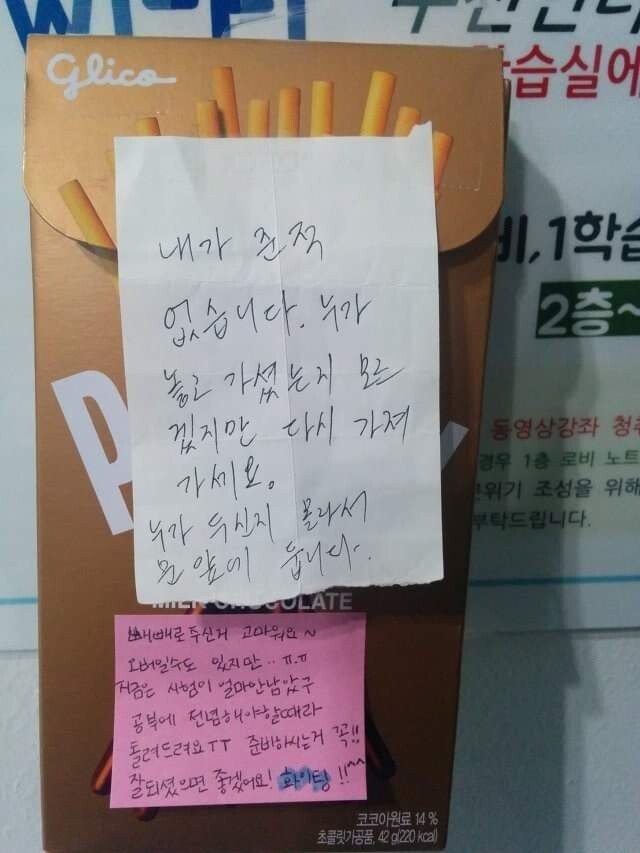 Glico
습실에
내가 준적
없습니다. 누가
놓고 가셨는지 모르
겠지만 다시 가져
가세요.
누가 두신지 몰라서
문 앞에 둡니다.
비,1학습
2층~
동영상강좌 청취
경우 1층 로비 노트
분위기 조성을 위해
부탁드립니다.
P
MILK CHOCOLATE
빼빼로 주신거 고마워요~
오버일수도 있지만.. ㅠ.ㅠ
지금은 시험이 얼마안남았구
공부에 전념해야할때라
돌려드려요 TT 준비하시는거 꼭!!
잘되셨으면 좋겠어요! 화이팅!!^^
코코아원료 14%
초콜릿가공품, 42 g(220 kcal)